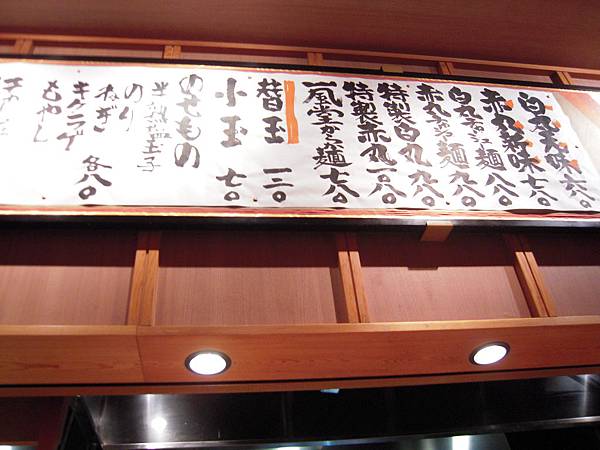 白丸元味 六八〇
赤丸新味 七八〇
白丸
麺 八八〇
赤丸
麺 九八〇
特製白丸 九八〇
特製赤丸 一〇八〇
一風堂からか麺 七八〇
替玉 一三〇
小玉 七〇
のせもの
半熟塩玉子
のり
ねぎ
キクラゲ
もやし
各八〇